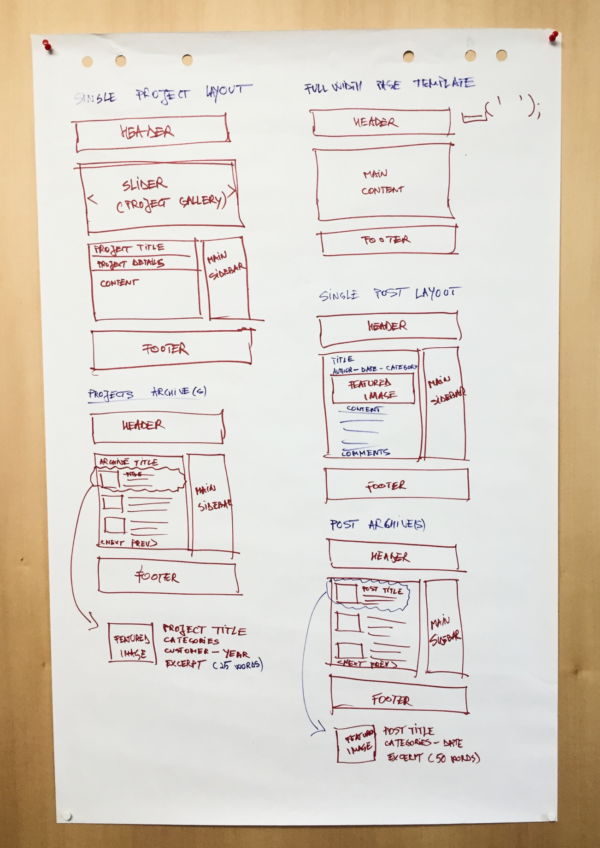 SINGLE PROJECT LAYOUT
HEADER
SLIDER
< (PROJECT GALLERY) >
PROJECT TITLE
PROJECT DETAILS
CONTENT
MAIN
SIDEBAR
FOOTER
PROJECTS ARCHIVE(S)
HEADER
ARCHIVE TITLE
TITLE
MAIN
SIDEBAR
<NEXT PREV>
FOOTER
FEATURED
IMAGE
PROJECT TITLE
CATEGORIES
CUSTOMER - YEAR
EXCERPT (25 WORDS)
FULL WIDTH PAGE TEMPLATE
HEADER
__(' ');
MAIN
CONTENT
FOOTER
SINGLE POST LAYOUT
HEADER
TITLE
AUTHOR - DATE - CATEGORY
FEATURED
IMAGE
CONTENT
COMMENTS
MAIN
SIDEBAR
FOOTER
POST ARCHIVE(S)
HEADER
POST TITLE
MAIN
SIDEBAR
<NEXT PREV>
FOOTER
FEATURED
IMAGE
POST TITLE
CATEGORIES - DATE
EXCERPT (50 WORDS)